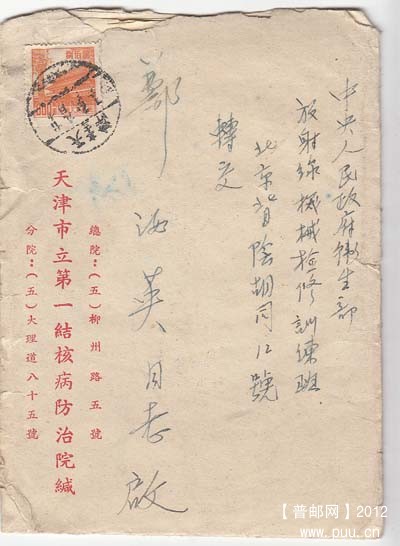 中央人民政府衛生部
放射綫機械檢修訓練班
北京背陰胡同12號
轉交
鄭汝英同志啟
總院：（五）柳州路五號
天津市立第一結核病防治院緘
分院：（五）大理道八十五號
【普邮网】2012
www.puu.cn